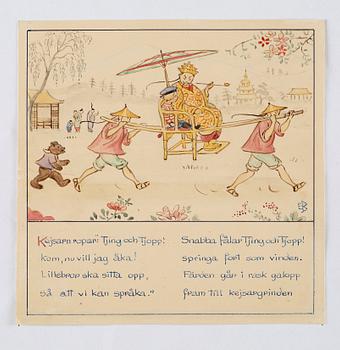 Kejsarn ropar: Tjing och Tjopp!
kom, nu vill jag åka!
Lillebror ska sitta opp,
så att vi kan språka."
Snabba fålar Tjing och Tjopp!
springa fort som vinden.
Färden går i rask galopp
fram till kejsargrinden